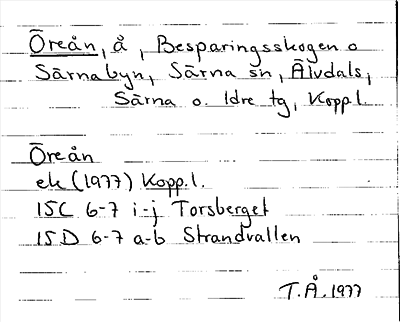 Öreån, å, Besparingsskogen o
Särnabyn, Särna sn, Älvdals,
Särna o. Idre tg, Koppl.
Öreån
ek (1977) Kopp.l.
15C 6-7 i-j Torsberget
15D 6-7 a-b Strandvallen
T.Å. 1977